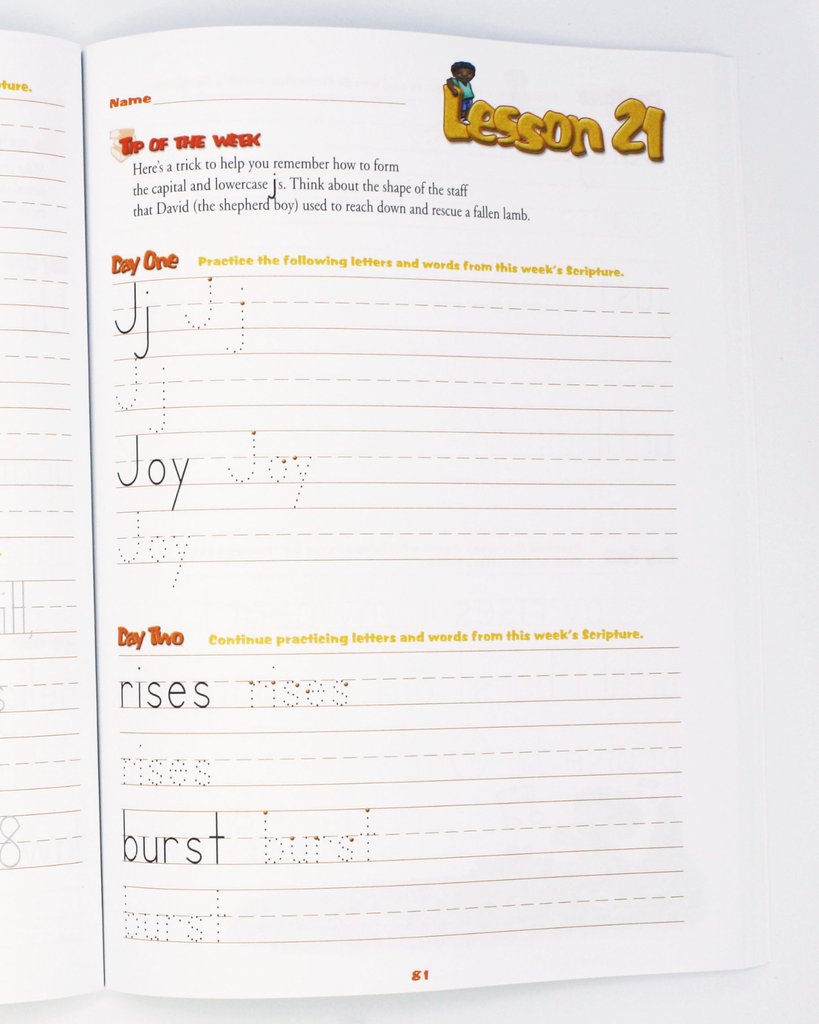 pture.
ill,
s
8
Name
Lesson 21
Tip of the Week
Here's a trick to help you remember how to form
the capital and lowercase js. Think about the shape of the staff
that David (the shepherd boy) used to reach down and rescue a fallen lamb.
Day One Practice the following letters and words from this week's Scripture.
Jj Jj
Jj
Joy Joy
Joy
Day Two Continue practicing letters and words from this week's Scripture.
rises rises
rises
burst burst
burst
81